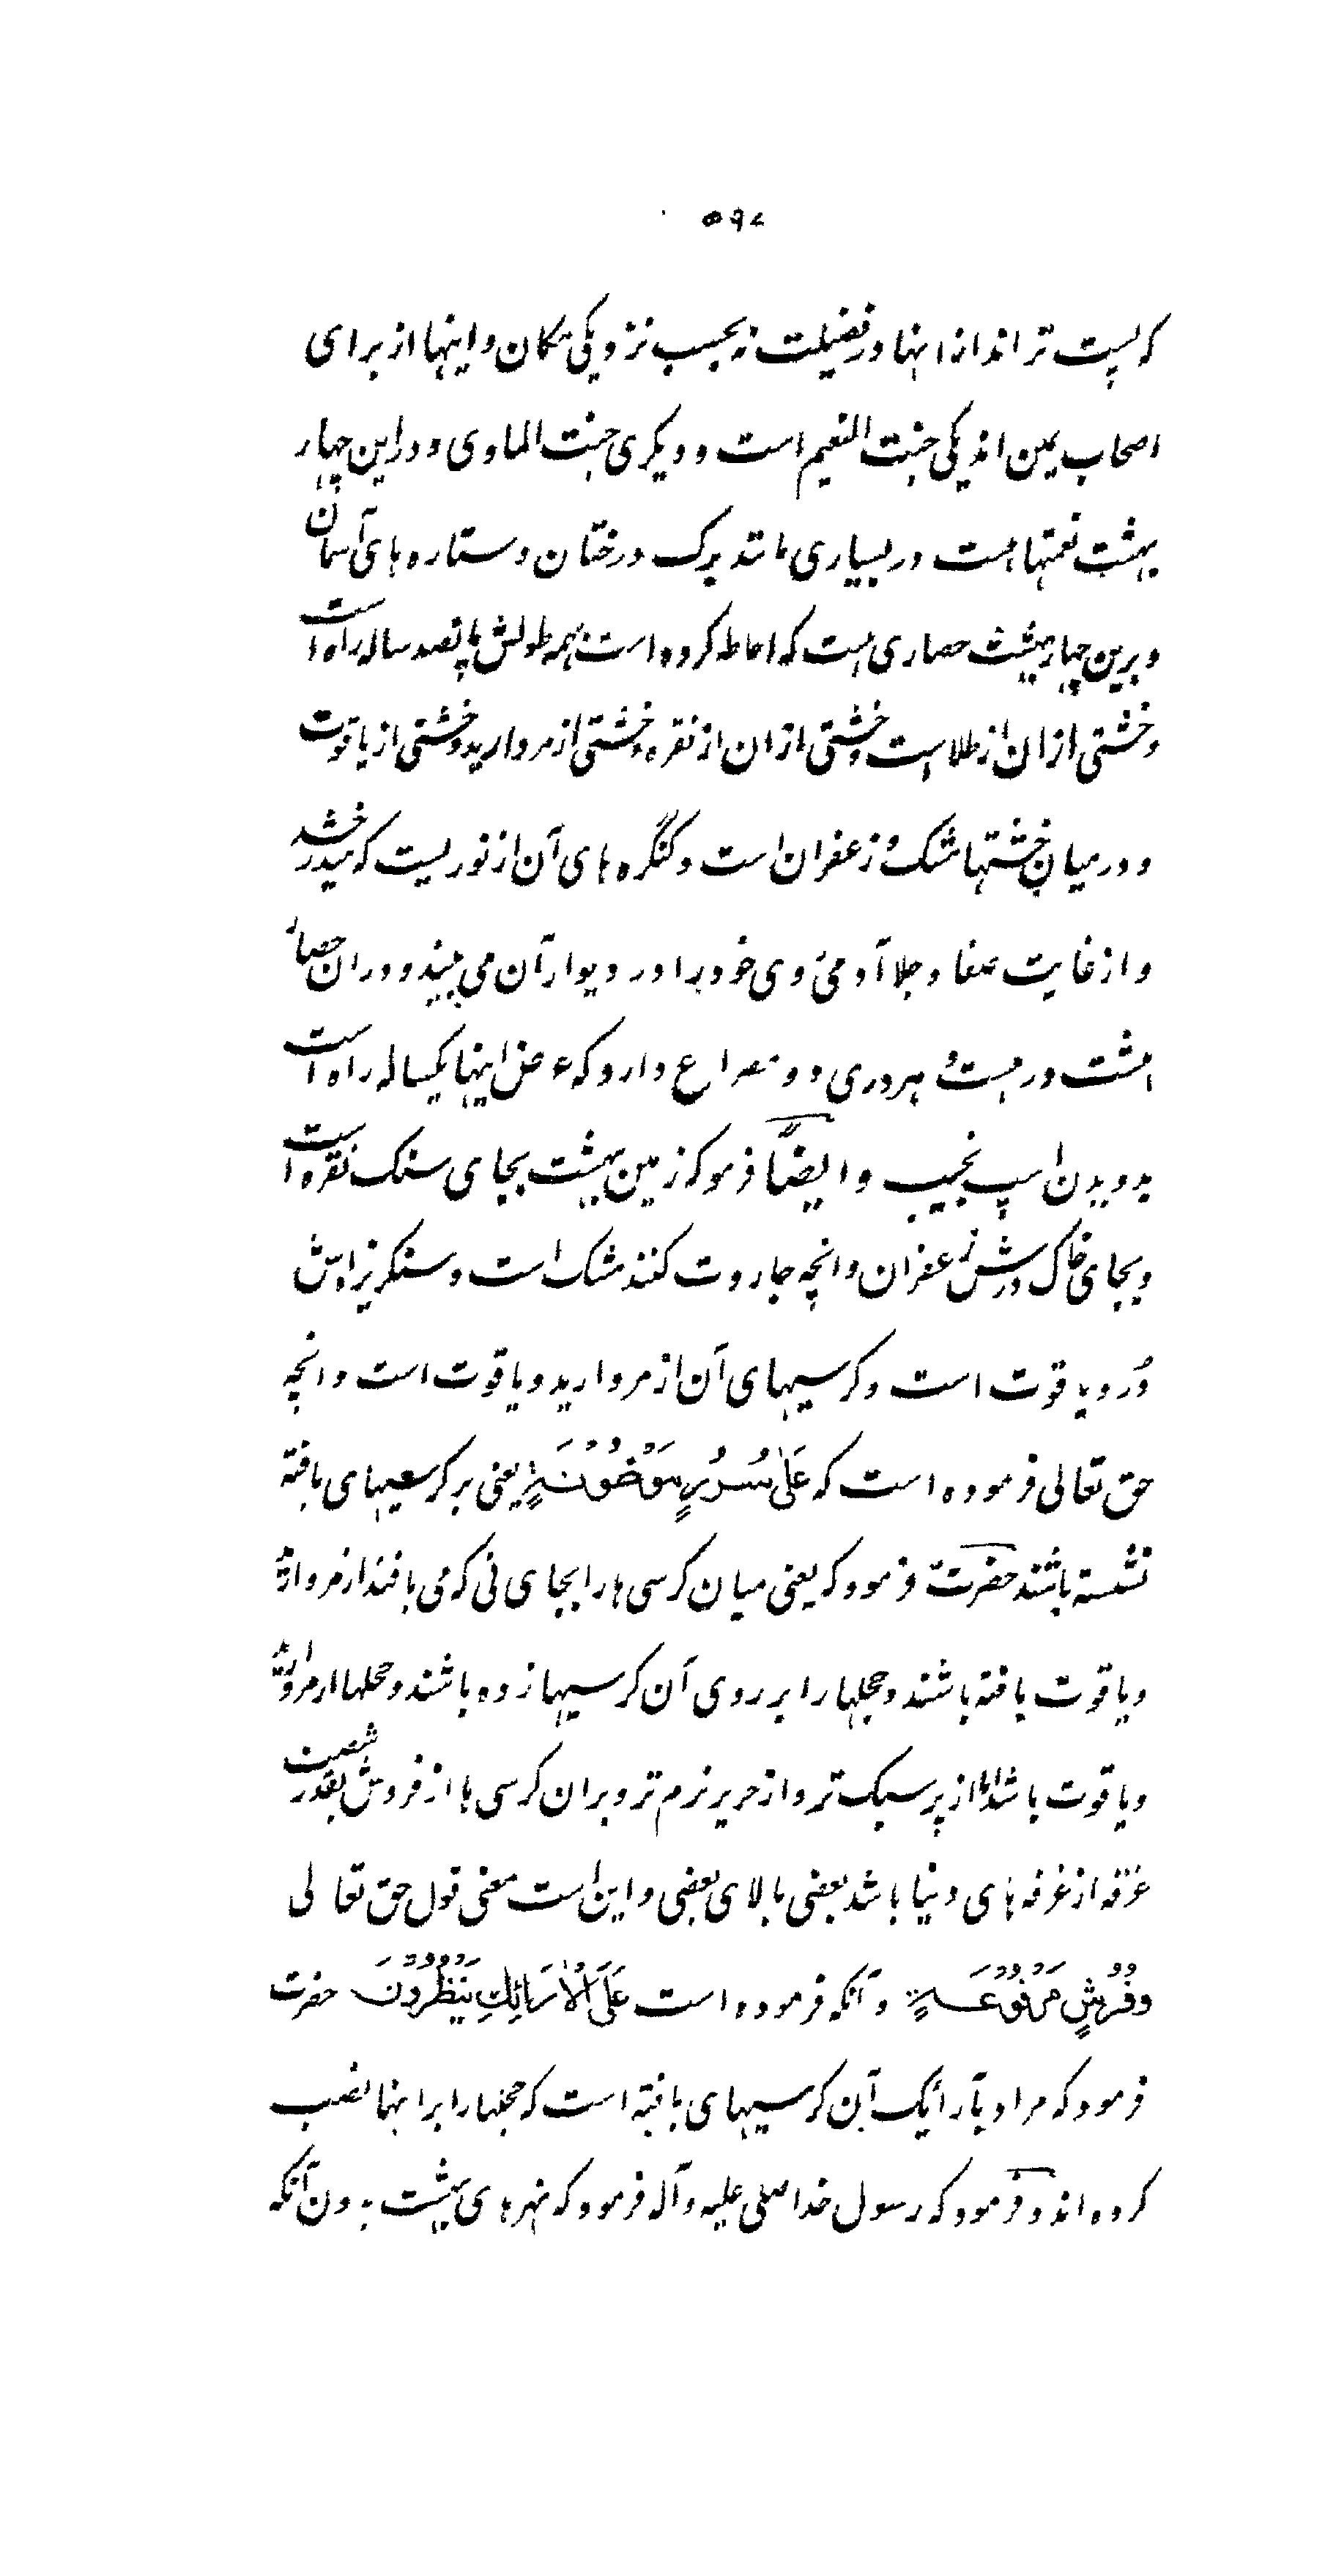 ۵۹۷
که پست تر اند از انها در فضیلت نه بحسب نزدیکی مکان و اینها از برای
اصحاب یمین اند یکی جنت النعیم است و دیکری جنت الماوی و در این چهار
بهشت نعمتها هست در بسیاری مانند برک درختان و ستاره های آسمان
و برین چهار بهشت حصاری هست که احاطه کرده است بهمه طولش پانصد ساله راه است
و خشتی ازان از طلاست و خشتی از ان از نقره و خشتی از مروارید و خشتی از یاقوت
و درمیان خشتها مشک و زعفران است و کنگره های آن از نوریست که میدرخشد
و از غایت صفا و جلا آدمی روی خود را در دیوار آن می بیند و در ان حصار
هشت در هست و هر دری دو مصراع دارد که عرض اینها یکساله راه است
بدویدن اسپ نجیب و ایضاً فرمو که زمین بهشت بجای سنک نقره است
و بجای خاک درش زعفران و انچه جاروت کنند مشک است و سنکریزه اش
دُر و یاقوت است و کرسیهای آن از مروارید و یاقوت است و انچه
حق تعالی فرموده است که عَلٰی سُرُرٍ مَوْضُوْنَةٍ یعنی بر کرسیهای بافته
نشسته باشند حضرت فرمود که یعنی میان کرسی ها را بجای نی که می بافند از مروارید
و یاقوت بافته باشند و حجلها را بر روی آن کرسیها زده باشند و حجلها از مروارید
و یاقوت باشد اما از پر سبک تر و از حریر نرم تر و بران کرسی ها از فروش بقدر شصت
غرفه از غرفه های دنیا باشد بعضی بالای بعضی و این است معنی قول حق تعالی
وَفُرُشٍ مَرْفُوْعَةٍ و آنکه فرموده است عَلَی الْاَرَائِكِ يَنْظُرُوْنَ حضرت
فرمود که مراد بآرائک آن کرسیهای بافته است که حجلها را برانها نصب
کرده اند و فرمود که رسول خدا صلی علیه و آله فرمود که نهرهای بهشت بدون آنکه